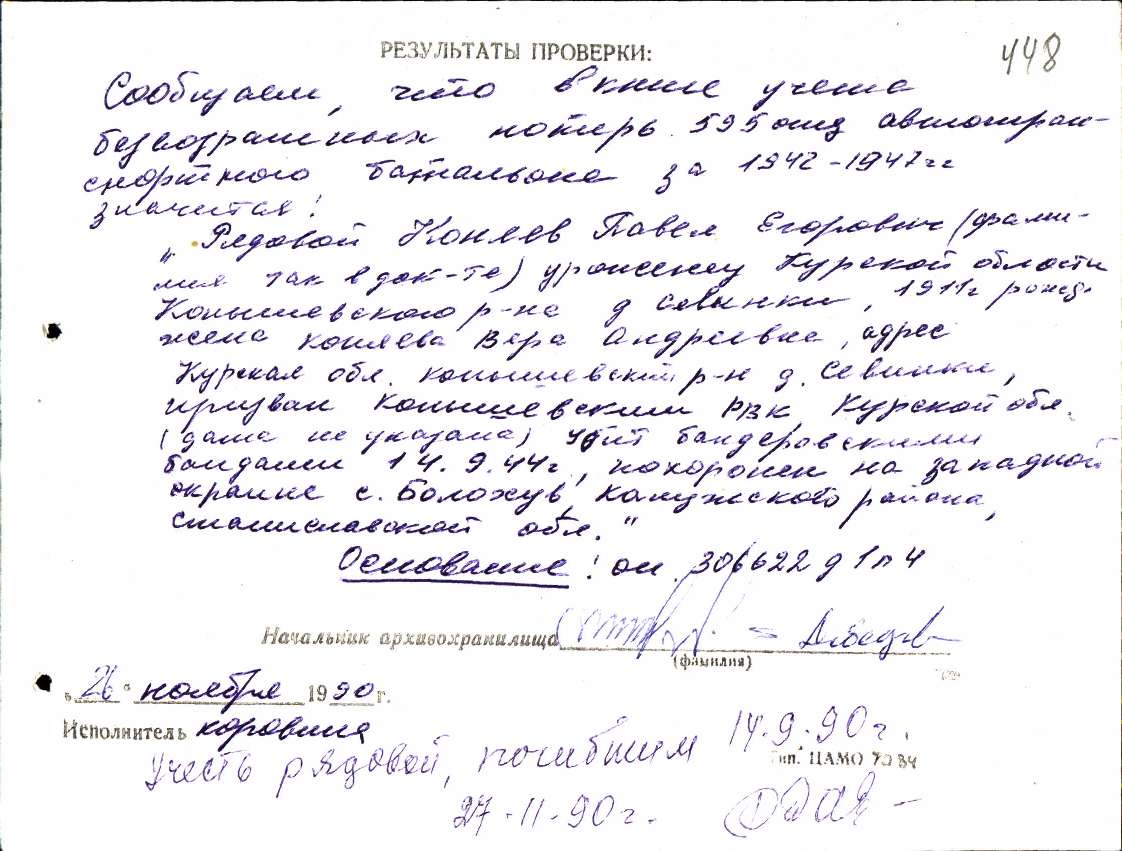 РЕЗУЛЬТАТЫ ПРОВЕРКИ:
448
Сообщаем, что в книге учета
безвозвратных потерь 595 отд автотран-
спортного батальона за 1942-1947гг
значится:
„Рядовой Коняев Павел Егорович (фами-
лия так в док-те) уроженец Курской области
Конышевского р-на д Севинки, 1911г рожд.
жена Коняева Вера Андреевна, адрес
Курская обл. Конышевский р-н д. Севинки,
призван Конышевским РВК, Курской обл.
(дата не указана) убит бандеровскими
бандами 14.9.44г., похоронен на западной
окраине с. Болохув, Калушского района,
Станиславской обл."
Основание: оп. 306622 д 1 л 4
Начальник архивохранилища
(фамилия)
„26" ноября 1990 г.
Исполнитель Коровина
Учесть рядовой, погибшим 14.9.90г.
Тип. ЦАМО
27-11-90г.